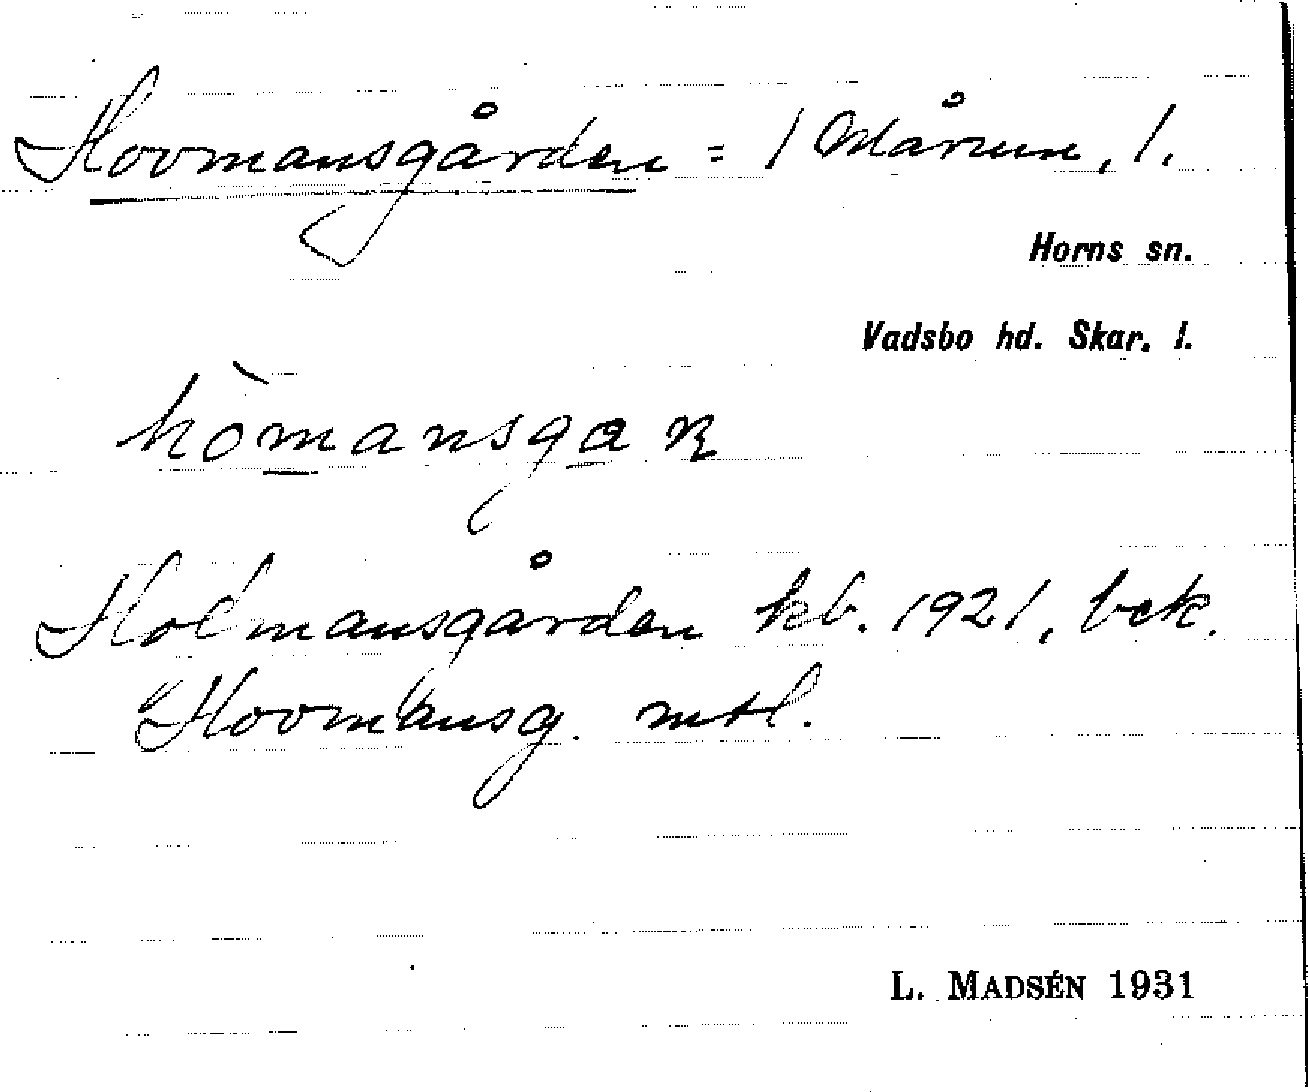 Hovmansgården = 1 Mårum, 1.
Horns sn.
Vadsbo hd. Skar. l.
hòmansgaɳ
Holmansgården kb. 1921, bck.
Hovmansg. mtl.
L. MADSÉN 1931